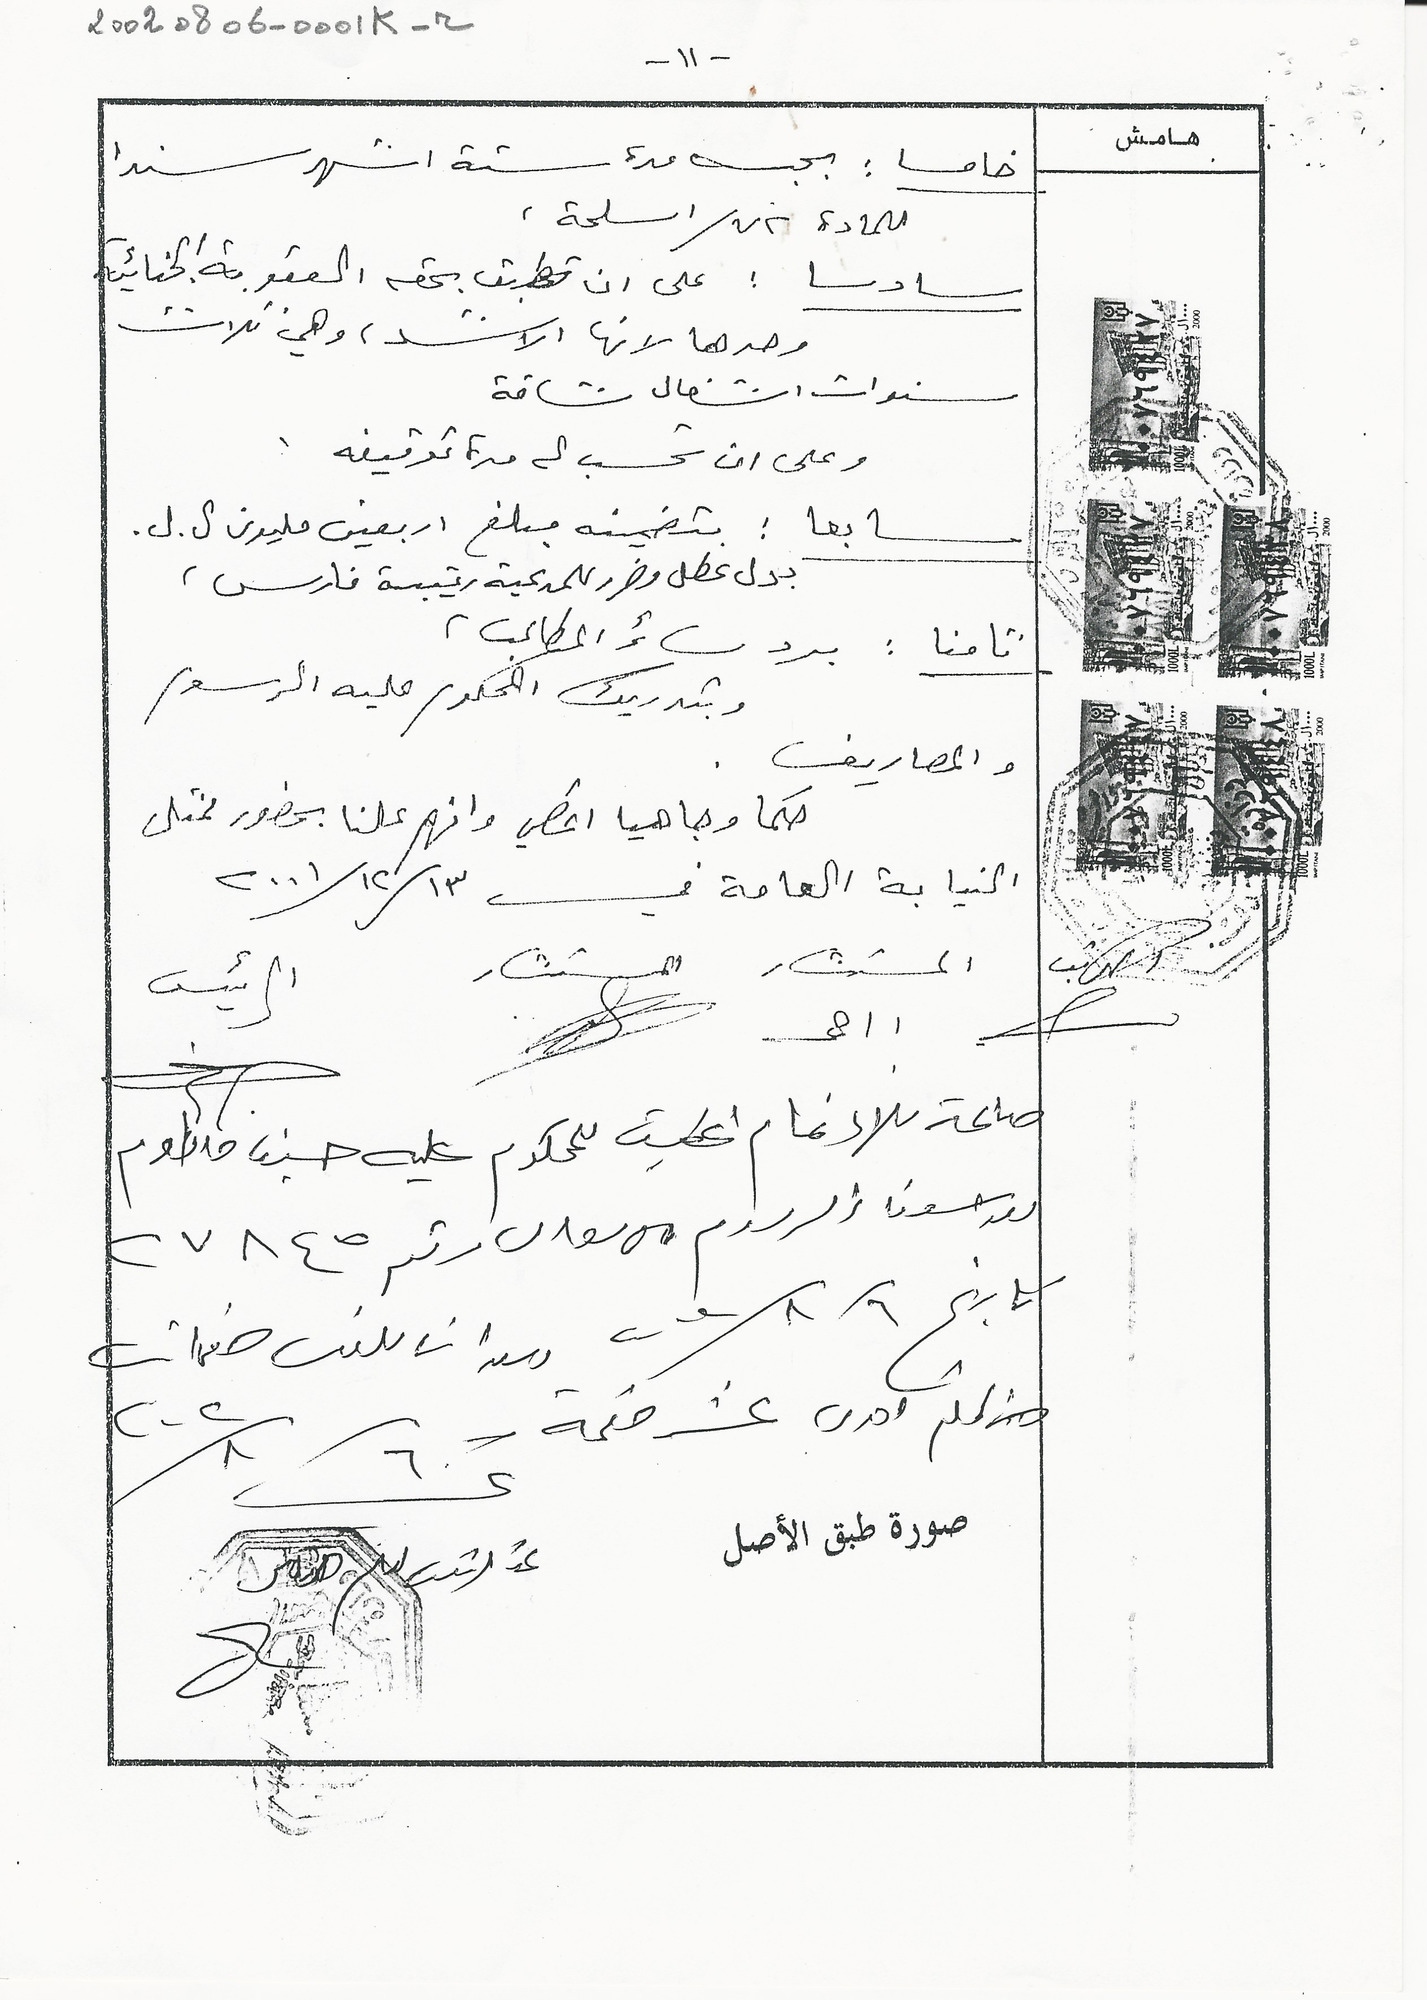 20020806-0001K-r
- ١١ -
هامش
خامسا : بحبسه مدة ستة اشهر سندا
للمادة ٧٢/ اسلحة ،
سادسا : على ان تطبق بحقه العقوبة الجنائية
وحدها لانها الاشد ، وهي ثلاث
سنوات اشغال شاقة
وعلى ان تحسب له مدة توقيفه ،
سابعا : بتضمينه مبلغ اربعين مليون ل.ل.
بدل عطل وضرر للمدعية رتيبة فارس ،
ثامنا : برد سائر المطالب ،
وبتدريك المحكوم عليه الرسوم
والمصاريف .
حكما وجاهيا اعطي وافهم علنا بحضور ممثل
النيابة العامة في ١٣/١٢/٢٠٠١
الكاتب المستشار المستشار الرئيس
صالحة للادغام اعطيت للمحكوم عليه حسين
الرسوم رقم ٢٧٨٤٥
تاريخ ٦/٨/ صفحات
الحكم احدى عشر صفحة ٦/٨/٢٠٠٢
صورة طبق الأصل
1000L
2000